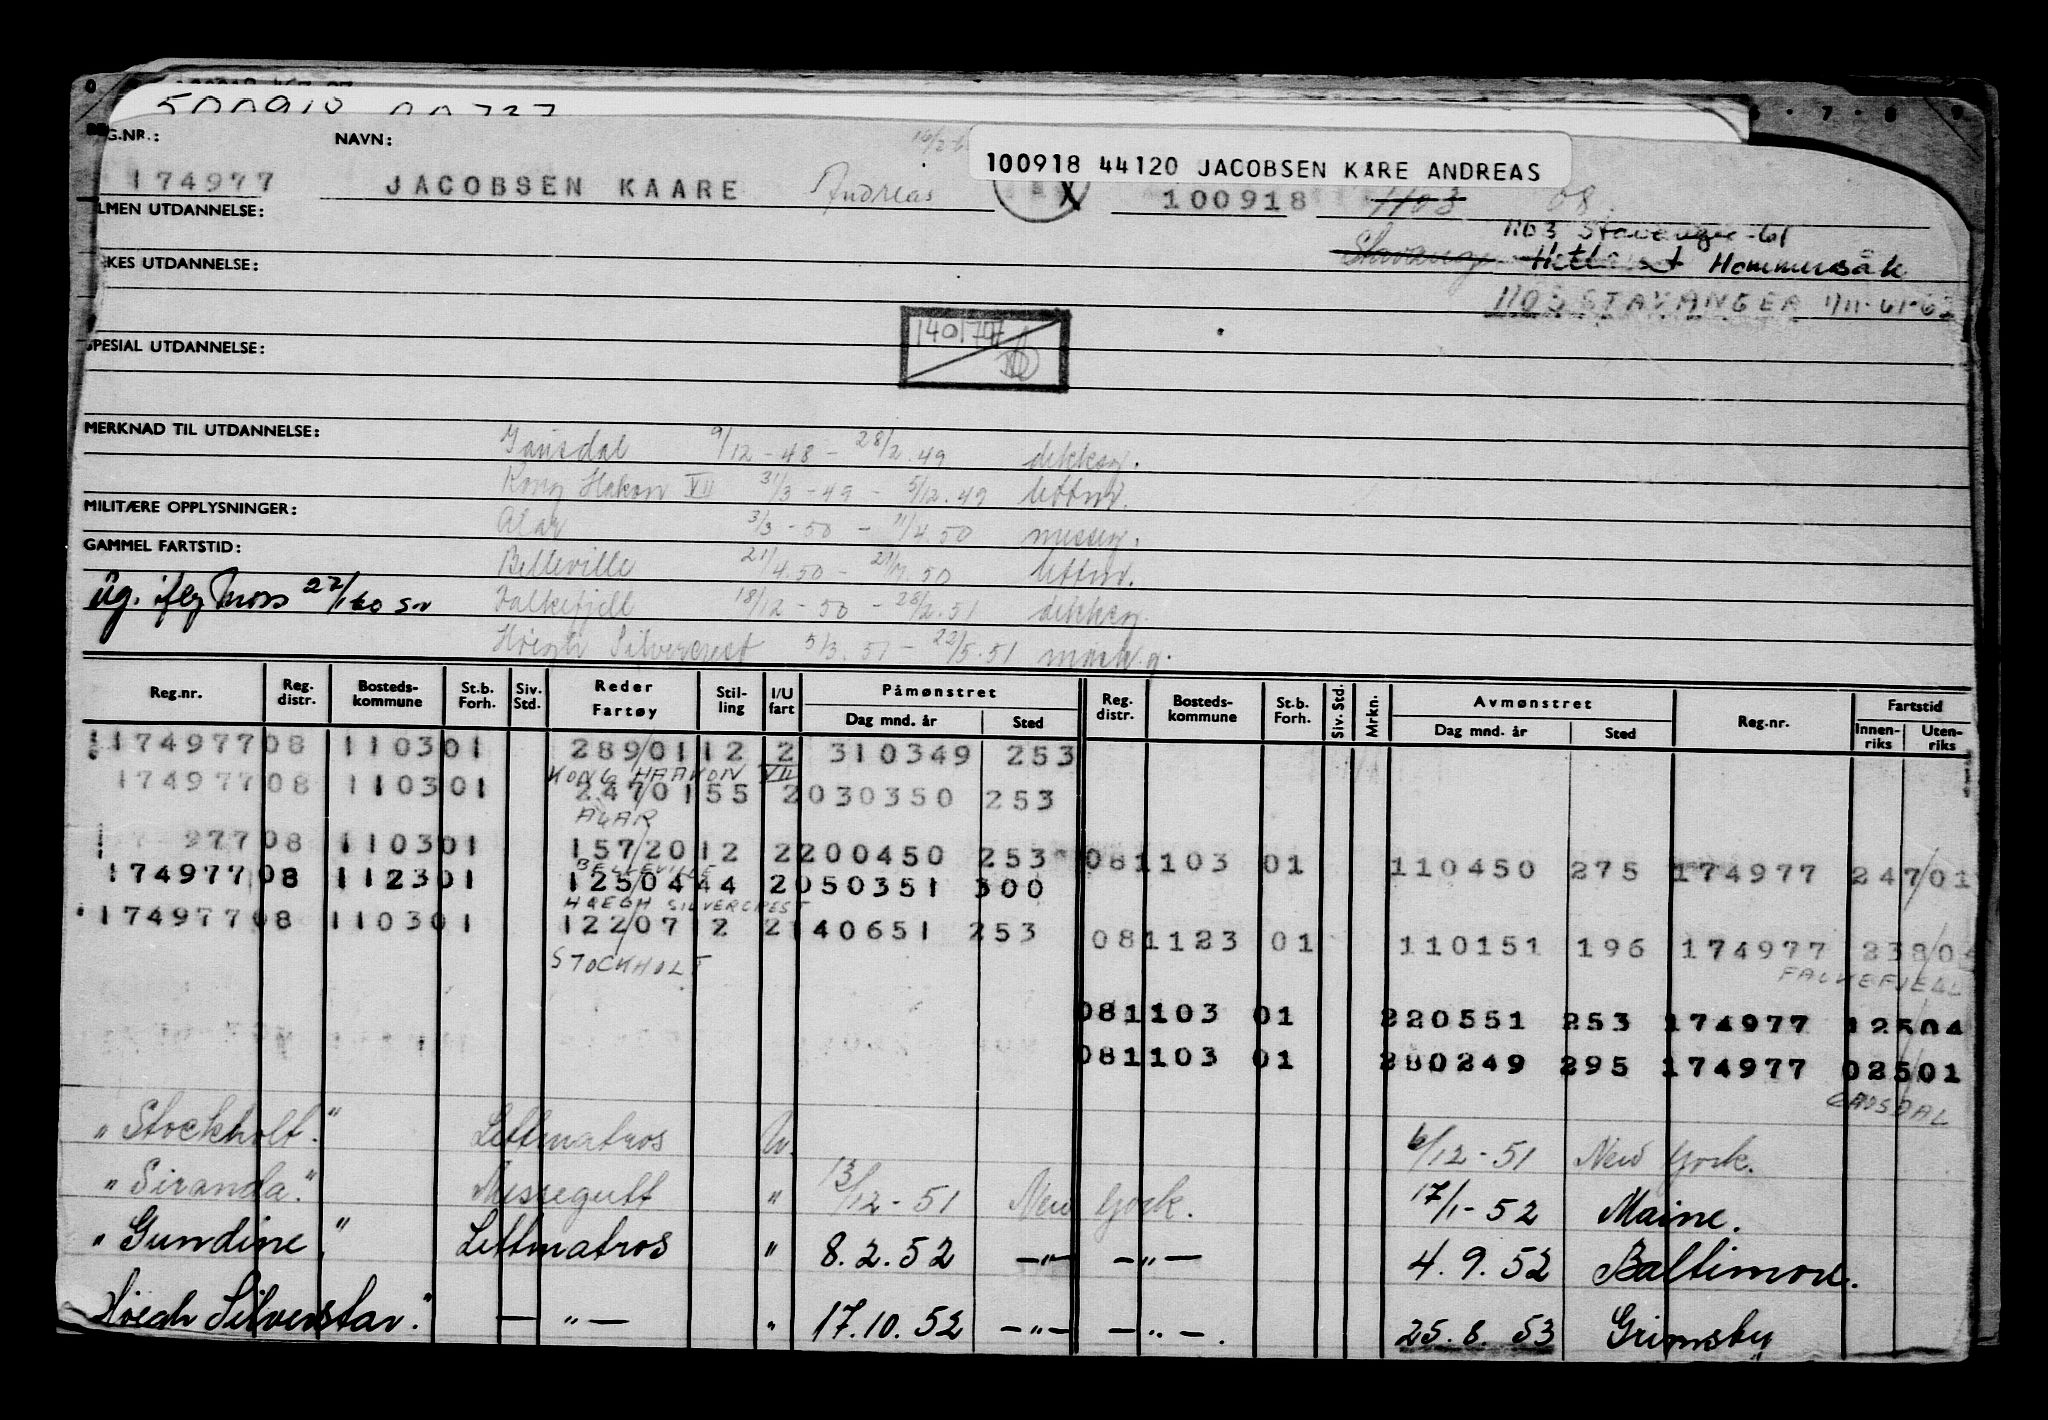 100918 44120 JACOBSEN KÅRE ANDREAS
NAVN:
174977 JACOBSEN KAARE Andreas X 100918 1103 08
ALMEN UTDANNELSE:
1103 Stavanger-61
Stavanger Hetland Hommersåk
UTDANNELSE:
1103 STAVANGER 1/11-61-62
SPESIAL UTDANNELSE:
MERKNAD TIL UTDANNELSE:
Gausdal 9/12-48 - 28/2.49 dekksg.
Kong Hakon VII 31/3-49 - 5/12.49 lettm.
MILITÆRE OPPLYSNINGER:
Alar 3/3-50 - 11/4.50 messeg.
GAMMEL FARTSTID:
Belleville 21/4.50 - 50 lettm.
Falkefjell 18/12-50 - 28/2.51 dekksg.
Høegh Silvercrest 5/3.51 - 22/5.51 mask.g.
Reg.nr. Reg. distr. Bosteds- kommune St.b. Forh. Siv. Std. Reder Fartøy Stil- ling I/U fart Påmønstret Dag mnd. år Sted Reg. distr. Bosteds- kommune St.b. Forh. Siv. Std. Mrkn. Avmønstret Dag mnd. år Sted Reg.nr. Fartstid Innen- riks Uten- riks
174977 08 1103 01 289/01 12 2 310349 253
KONG HAAKON VII
174977 08 1103 01 247/01 55 2 030350 253
ALAR
977 08 1103 01 157/20 12 2 200450 253 08 1103 01 110450 275 174977 247/01
BELLEVILLE
174977 08 1123 01 125044 44 2 050351 300
HØEGH SILVERCREST
174977 08 1103 01 122/07 12 2 140651 253 08 1123 01 110151 196 174977 238/04
STOCKHOLT FALKEFJELL
08 1103 01 220551 253 174977 12504
08 1103 01 280249 295 174977 025/01
GAUSDAL
" Stockholt." Lettmatros U. 6/12-51 New York.
" Siranda." Messegutt " 13/12-51 New York. 17/1-52 Maine.
" Gundine " Lettmatros " 8.2.52 —"— —"— 4.9.52 Baltimore.
Høegh Silverstar." — " — " 17.10.52 —"— —"—. 25.8.53 Grimsby